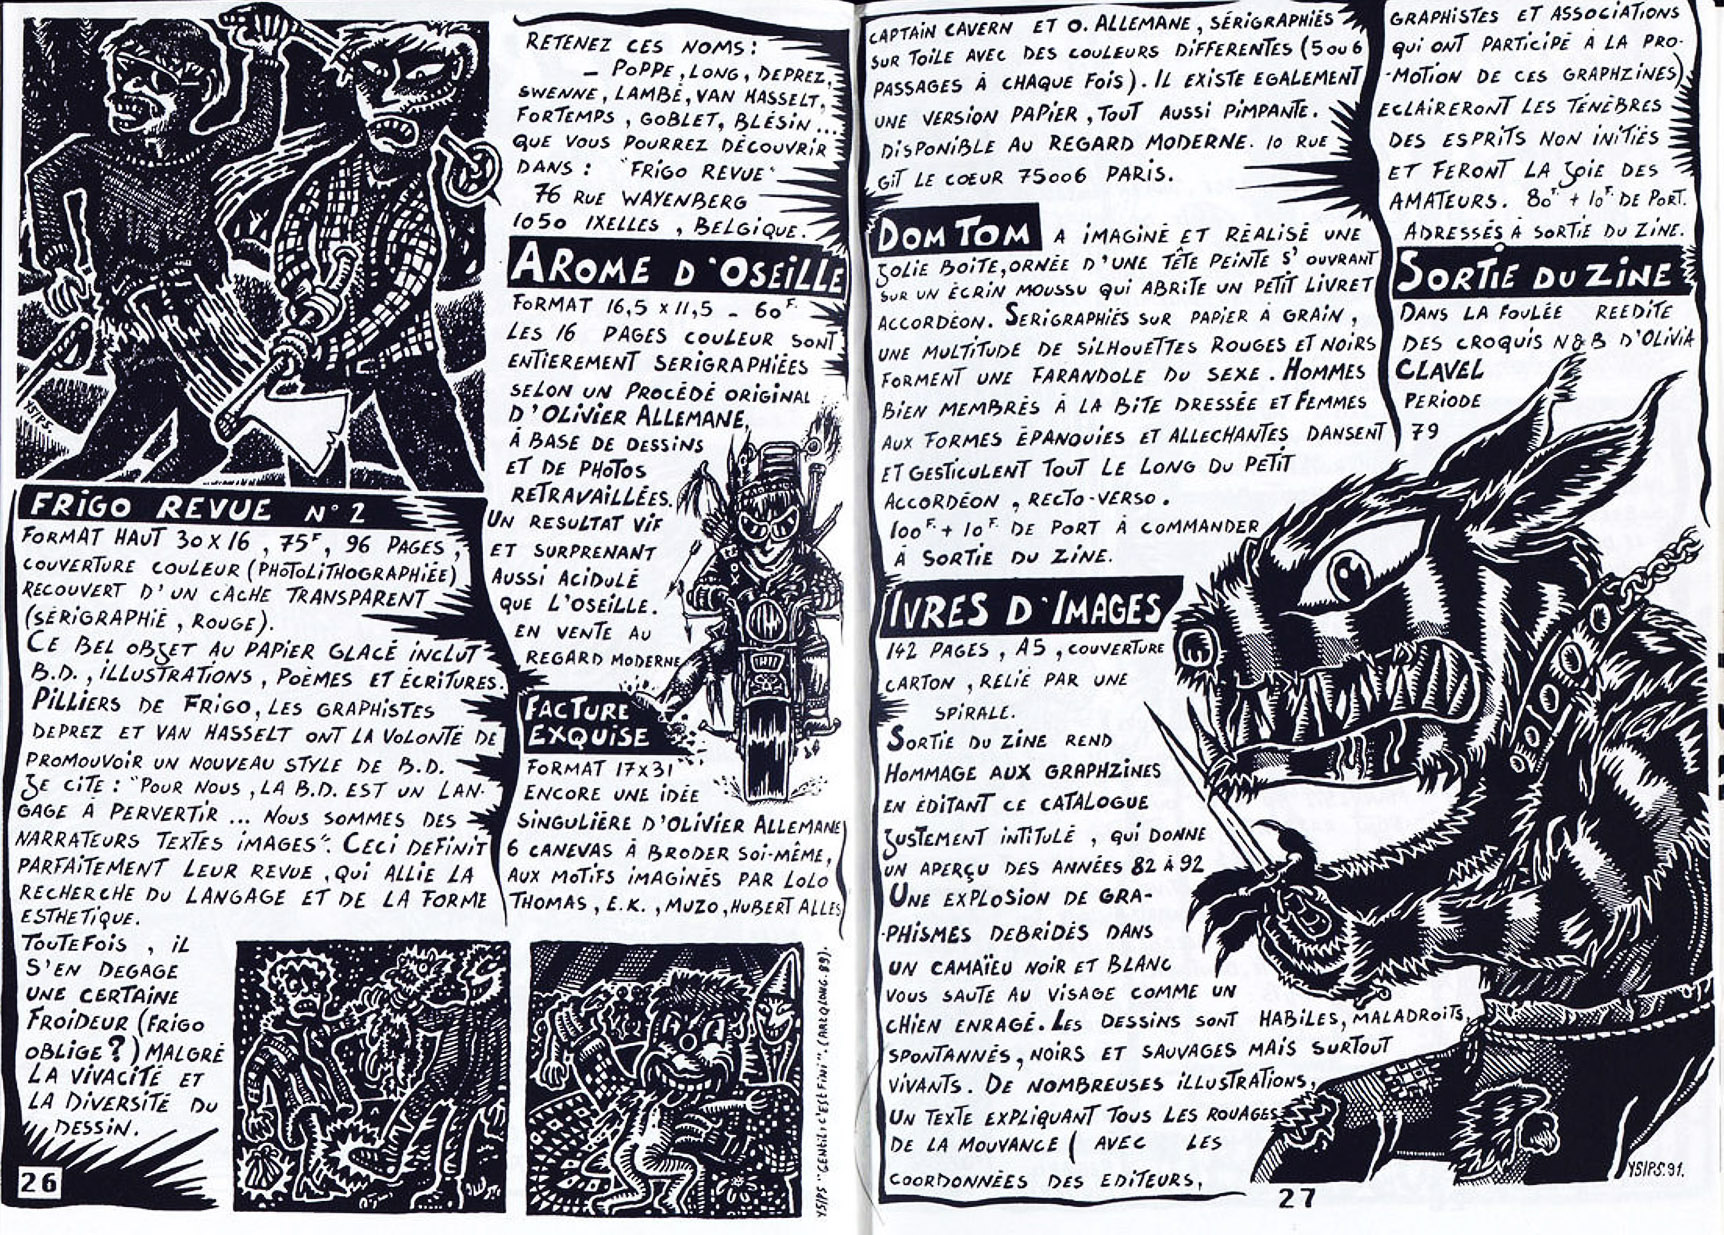 YS/PS.
FRIGO REVUE N°2
FORMAT HAUT 30X16, 75F, 96 PAGES,
COUVERTURE COULEUR (PHOTOLITHOGRAPHIÉE)
RECOUVERT D'UN CACHE TRANSPARENT
(SÉRIGRAPHIÉ, ROUGE).
CE BEL OBJET AU PAPIER GLACÉ INCLUT
B.D., ILLUSTRATIONS, POÈMES ET ÉCRITURES.
PILLIERS DE FRIGO, LES GRAPHISTES
DEPREZ ET VAN HASSELT ONT LA VOLONTÉ DE
PROMOUVOIR UN NOUVEAU STYLE DE B.D.
JE CITE : "POUR NOUS, LA B.D. EST UN LAN-
GAGE À PERVERTIR ... NOUS SOMMES DES
NARRATEURS TEXTES IMAGES". CECI DEFINIT
PARFAITEMENT LEUR REVUE, QUI ALLIE LA
RECHERCHE DU LANGAGE ET DE LA FORME
ESTHETIQUE.
TOUTEFOIS, IL
S'EN DEGAGE
UNE CERTAINE
FROIDEUR (FRIGO
OBLIGE ?) MALGRÉ
LA VIVACITÉ ET
LA DIVERSITÉ DU
DESSIN.
26
RETENEZ CES NOMS :
– POPPE, LONG, DEPREZ,
SWENNE, LAMBÉ, VAN HASSELT,
FORTEMPS, GOBLET, BLÉSIN...
QUE VOUS POURREZ DÉCOUVRIR
DANS : "FRIGO REVUE"
76 RUE WAYENBERG
1050 IXELLES, BELGIQUE.
AROME D'OSEILLE
FORMAT 16,5 X 11,5 – 60F.
LES 16 PAGES COULEUR SONT
ENTIEREMENT SERIGRAPHIÉES
SELON UN PROCÉDÉ ORIGINAL
D'OLIVIER ALLEMANE,
À BASE DE DESSINS
ET DE PHOTOS
RETRAVAILLÉES.
UN RESULTAT VIF
ET SURPRENANT
AUSSI ACIDULÉ
QUE L'OSEILLE.
EN VENTE AU
REGARD MODERNE
FACTURE
EXQUISE
FORMAT 17X31
ENCORE UNE IDÉE
SINGULIÈRE D'OLIVIER ALLEMANE
6 CANEVAS À BRODER SOI-MÊME,
AUX MOTIFS IMAGINÉS PAR LOLO
THOMAS, E.K., MUZO, HUBERT ALLES
YS/PS "GENTIL; C'EST FINI". (AREQLONG. 89).
CAPTAIN CAVERN ET O. ALLEMANE, SÉRIGRAPHIÉS
SUR TOILE AVEC DES COULEURS DIFFERENTES (5 OU 6
PASSAGES À CHAQUE FOIS). IL EXISTE EGALEMENT
UNE VERSION PAPIER, TOUT AUSSI PIMPANTE.
DISPONIBLE AU REGARD MODERNE. 10 RUE
GIT LE COEUR 75006 PARIS.
DOM TOM A IMAGINÉ ET RÉALISÉ UNE
JOLIE BOITE, ORNÉE D'UNE TÊTE PEINTE S'OUVRANT
SUR UN ÉCRIN MOUSSU QUI ABRITE UN PETIT LIVRET
ACCORDÉON. SERIGRAPHIÉS SUR PAPIER À GRAIN,
UNE MULTITUDE DE SILHOUETTES ROUGES ET NOIRS
FORMENT UNE FARANDOLE DU SEXE. HOMMES
BIEN MEMBRÉS À LA BITE DRESSÉE ET FEMMES
AUX FORMES ÉPANOUIES ET ALLECHANTES DANSENT
ET GESTICULENT TOUT LE LONG DU PETIT
ACCORDÉON, RECTO-VERSO.
100F. + 10F. DE PORT À COMMANDER
À SORTIE DU ZINE.
IVRES D'IMAGES
142 PAGES, A5, COUVERTURE
CARTON, RELIÉ PAR UNE
SPIRALE.
SORTIE DU ZINE REND
HOMMAGE AUX GRAPHZINES
EN ÉDITANT CE CATALOGUE
JUSTEMENT INTITULÉ, QUI DONNE
UN APERÇU DES ANNÉES 82 À 92
UNE EXPLOSION DE GRA-
-PHISMES DEBRIDÉS DANS
UN CAMAÏEU NOIR ET BLANC
VOUS SAUTE AU VISAGE COMME UN
CHIEN ENRAGÉ. LES DESSINS SONT HABILES, MALADROITS,
SPONTANNÉS, NOIRS ET SAUVAGES MAIS SURTOUT
VIVANTS. DE NOMBREUSES ILLUSTRATIONS,
UN TEXTE EXPLIQUANT TOUS LES ROUAGES
DE LA MOUVANCE ( AVEC LES
COORDONNÉES DES EDITEURS,
GRAPHISTES ET ASSOCIATIONS
QUI ONT PARTICIPÉ À LA PRO-
-MOTION DE CES GRAPHZINES)
ECLAIRERONT LES TÉNÈBRES
DES ESPRITS NON INITIÉS
ET FERONT LA JOIE DES
AMATEURS. 80F. + 10F. DE PORT.
ADRESSÉS À SORTIE DU ZINE.
SORTIE DU ZINE
DANS LA FOULÉE REEDITE
DES CROQUIS N&B D'OLIVIA
CLAVEL
PERIODE
79
YS/PS.91.
27